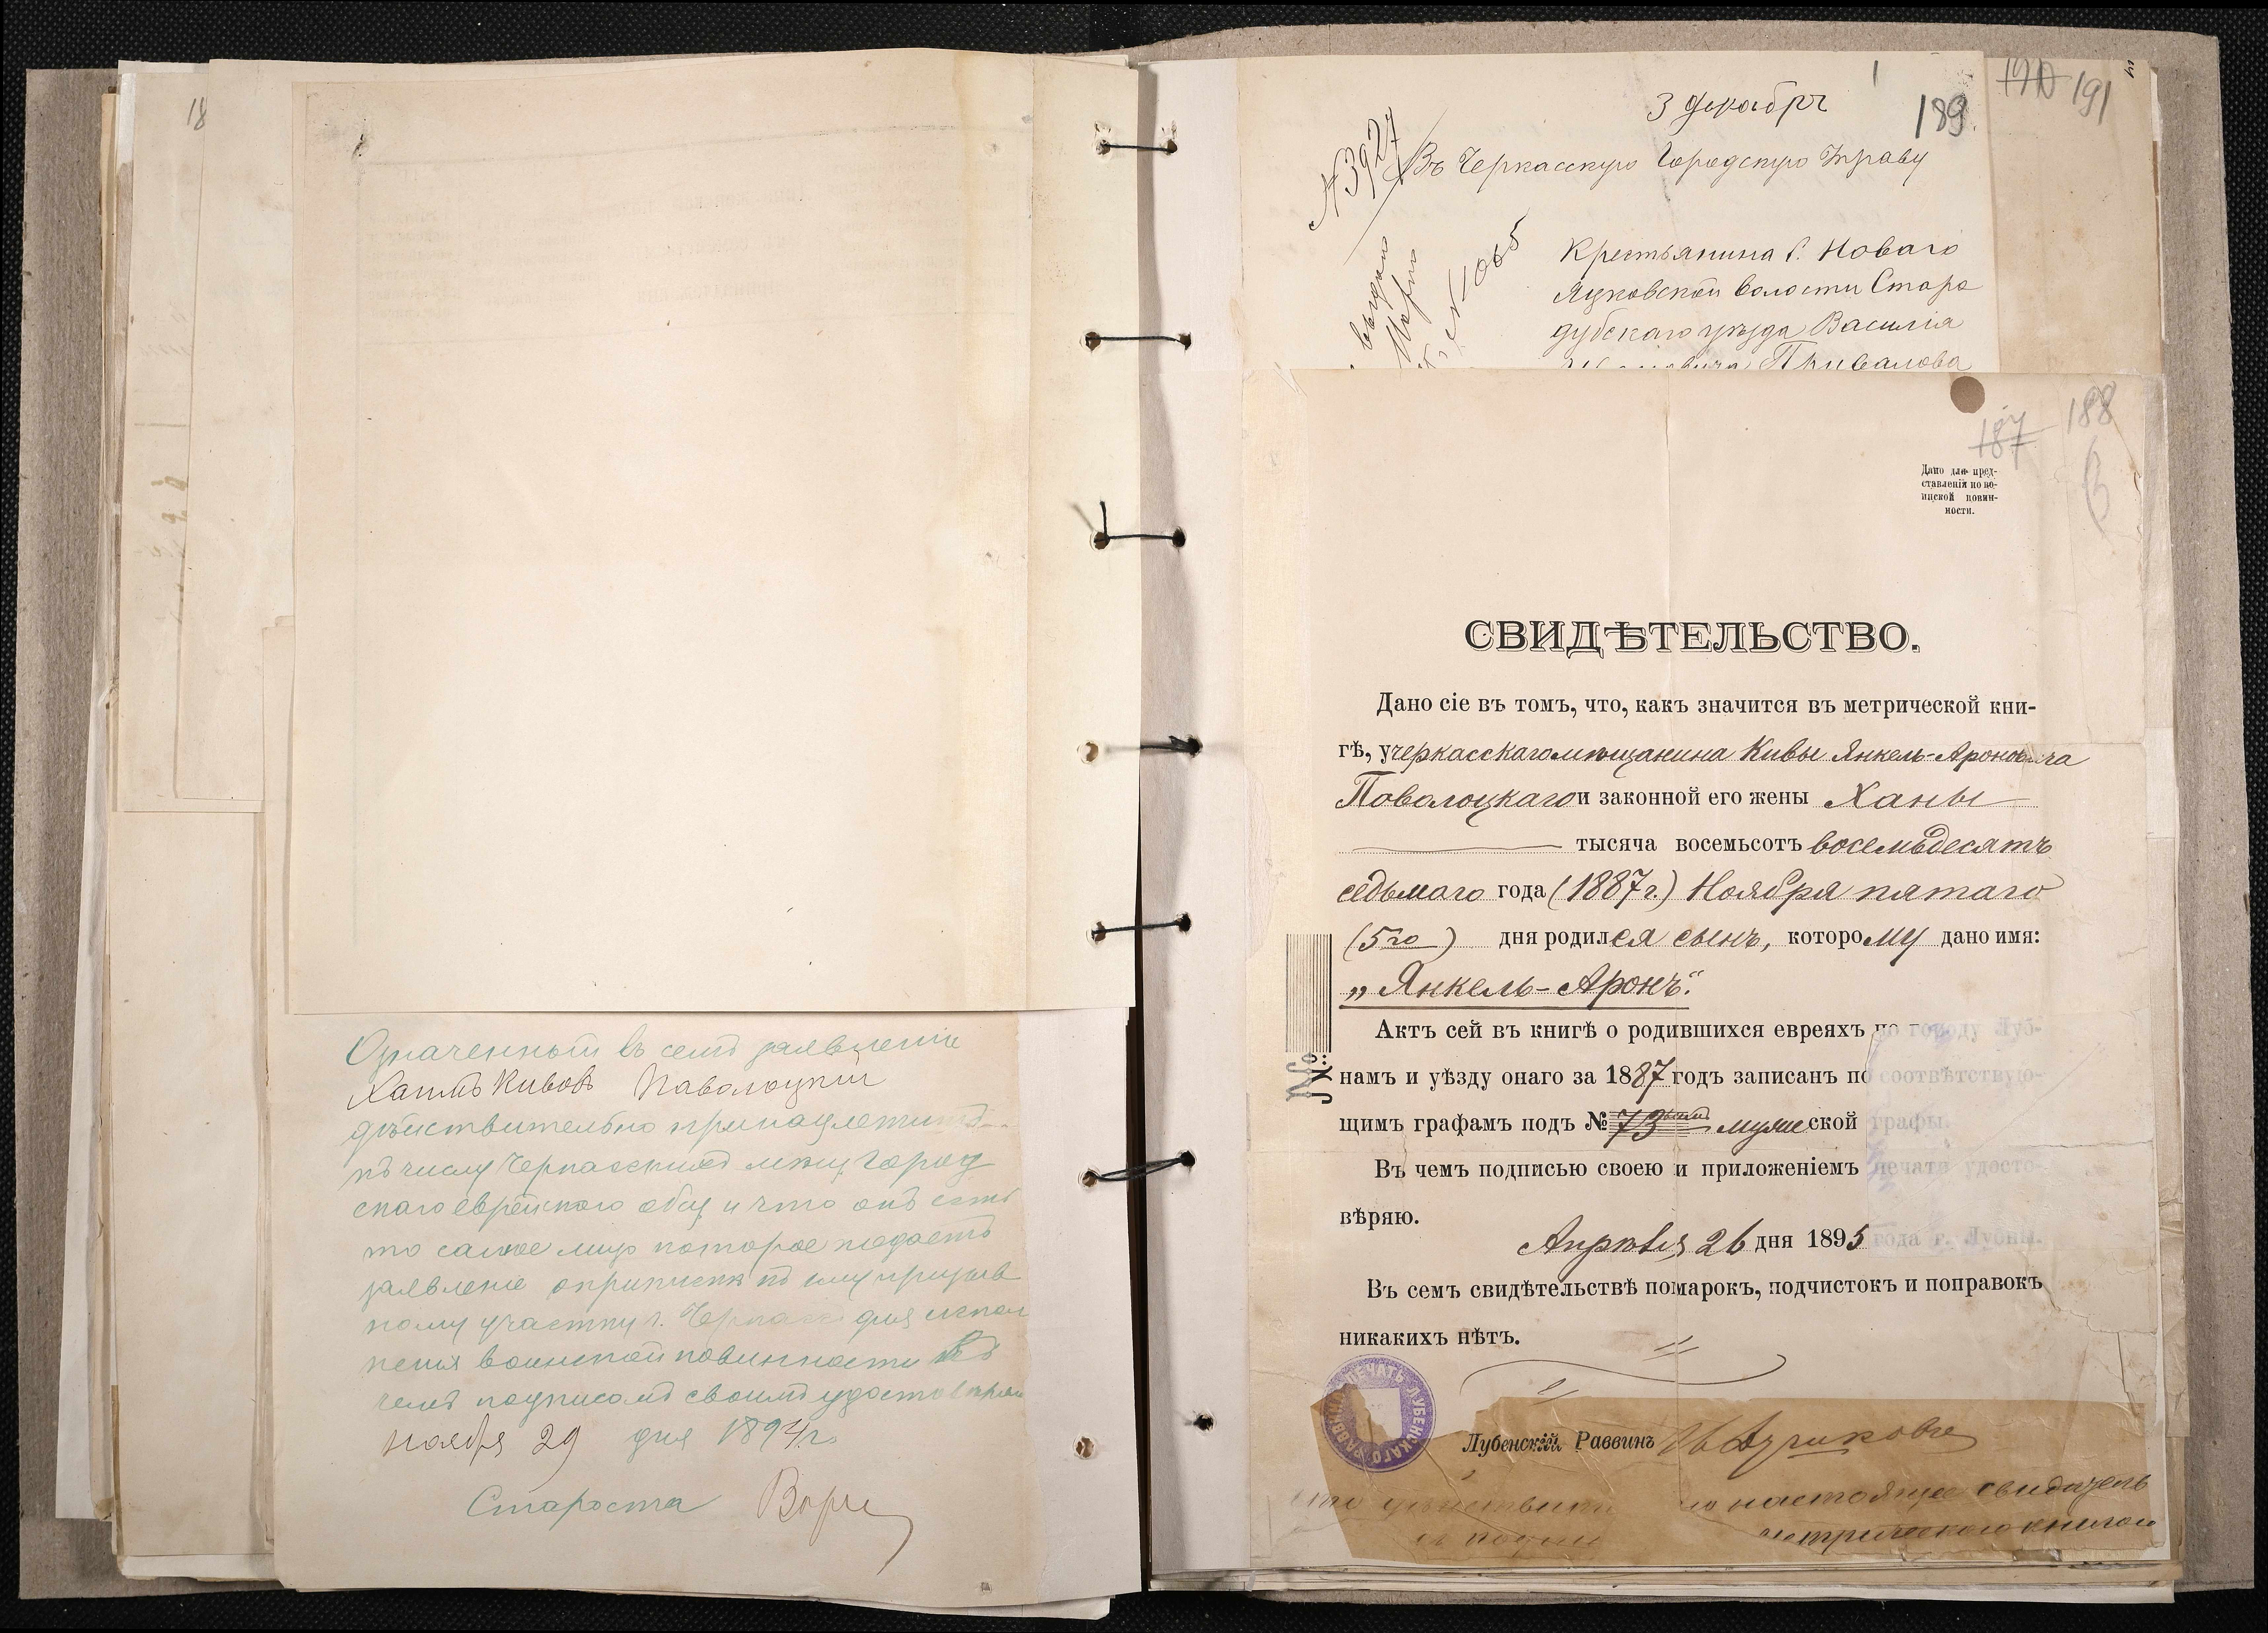 18
Означенный въ семъ заявленіе
Хаимъ Кивовъ Паволоцкій
дѣйствительно принадлежитъ
къ числу Черкасскихъ мѣщ. Город
скаго еврейскаго общ. и что онъ есть
то самое лицо которое подаетъ
заявленіе о припискѣ къ призыв
ному участку г. Черкассъ для испол
ненія воинской повинности въ
чемъ подписомъ своимъ удостовѣряю
ноября 29 дня 1894 г.
Староста
3 декабря
189
190 191
№3927
Въ Черкасскую Городскую Управу
Крестьянина с. Новаго
Яцковской волости Старо
дубскаго уѣзда Василія
Привалова
выдано
№ 1065
187 188
Дано для пред-
ставленія по во-
инской повин-
ности.
СВИДѢТЕЛЬСТВО.
Дано сіе въ томъ, что, какъ значится въ метрической кни-
гѣ, у черкасскаго мѣщанина Кивы Янкель-Ароновича
Поволоцкаго и законной его жены Ханы
тысяча восемьсотъ восемьдесятъ
седьмаго года (1887 г.) Ноября пятаго
(5го) дня родился сынъ, которому дано имя:
„Янкель-Аронъ“.
Актъ сей въ книгѣ о родившихся евреяхъ по городу Луб-
намъ и уѣзду онаго за 1887 годъ записанъ по соотвѣтствую-
щимъ графамъ подъ № 73 мужеской графы.
Въ чемъ подписью своею и приложеніемъ печати удосто-
вѣряю.
Апрѣля 26 дня 1895 года г. Лубны.
Въ семъ свидѣтельствѣ помарокъ, подчистокъ и поправокъ
никакихъ нѣтъ.
№
ПЕЧАТЬ ЛУБЕНСКАГО РАВВИНА
Лубенскій Раввинъ
что настоящее свидѣтель
метрическою книгою